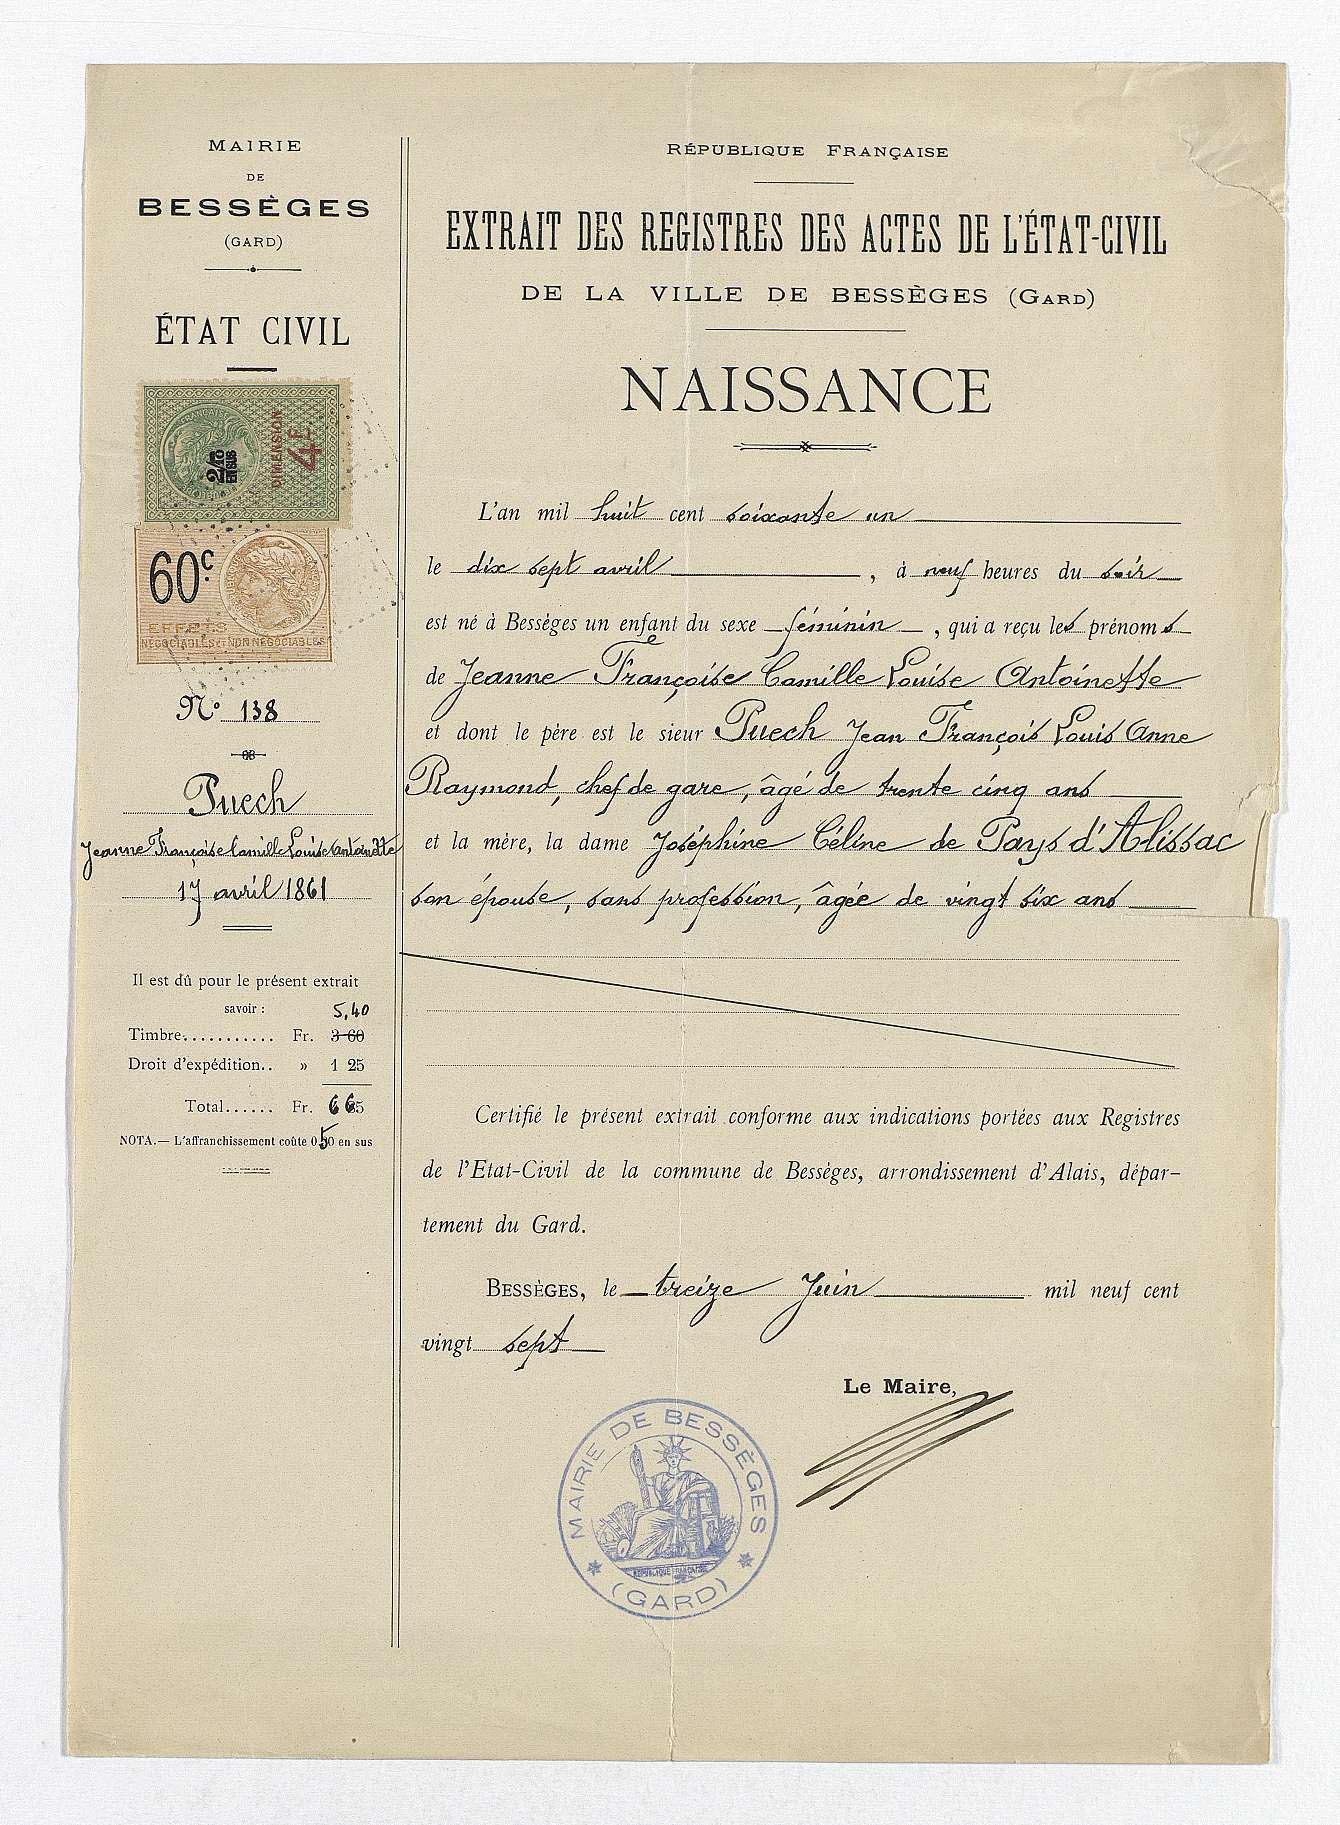 MAIRIE
DE
BESSÈGES
(GARD)
ÉTAT CIVIL
2/10
EN SUS
DIMENSION
4F.
60c.
EFFETS
NÉGOCIABLES ET NON NÉGOCIABLES
No 138
Puech
Jeanne Françoise Camille Louise Antoinette
17 avril 1861
Il est dû pour le présent extrait
savoir :
5,40
Timbre........... Fr. 3 60
Droit d'expédition.. » 1 25
Total...... Fr. 6 65
NOTA.— L'affranchissement coûte 0,50 en sus
RÉPUBLIQUE FRANÇAISE
EXTRAIT DES REGISTRES DES ACTES DE L'ÉTAT-CIVIL
DE LA VILLE DE BESSÈGES (GARD)
NAISSANCE
L'an mil huit cent soixante un
le dix sept avril, à neuf heures du soir
est né à Bessèges un enfant du sexe féminin, qui a reçu les prénoms
de Jeanne Françoise Camille Louise Antoinette
et dont le père est le sieur Puech Jean François Louis Anne
Raymond, chef de gare, âgé de trente cinq ans
et la mère, la dame Joséphine Céline de Pays d'Alissac
son épouse, sans profession, âgée de vingt six ans
Certifié le présent extrait conforme aux indications portées aux Registres
de l'Etat-Civil de la commune de Bessèges, arrondissement d'Alais, dépar-
tement du Gard.
BESSÈGES, le treize Juin mil neuf cent
vingt sept
Le Maire,
MAIRIE DE BESSÈGES
RÉPUBLIQUE FRANÇAISE
(GARD)